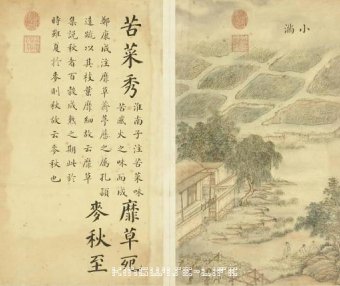 小滿
苦菜秀
淮南子注苦菜味
苦感火之味而成
靡草死
鄭康成注靡草薺葶藶之屬孔頴
達疏以其枝葉靡細故云靡草
麥秋至
集說秋者百穀成熟之期此於
時雖夏於麥則秋故云麥秋也